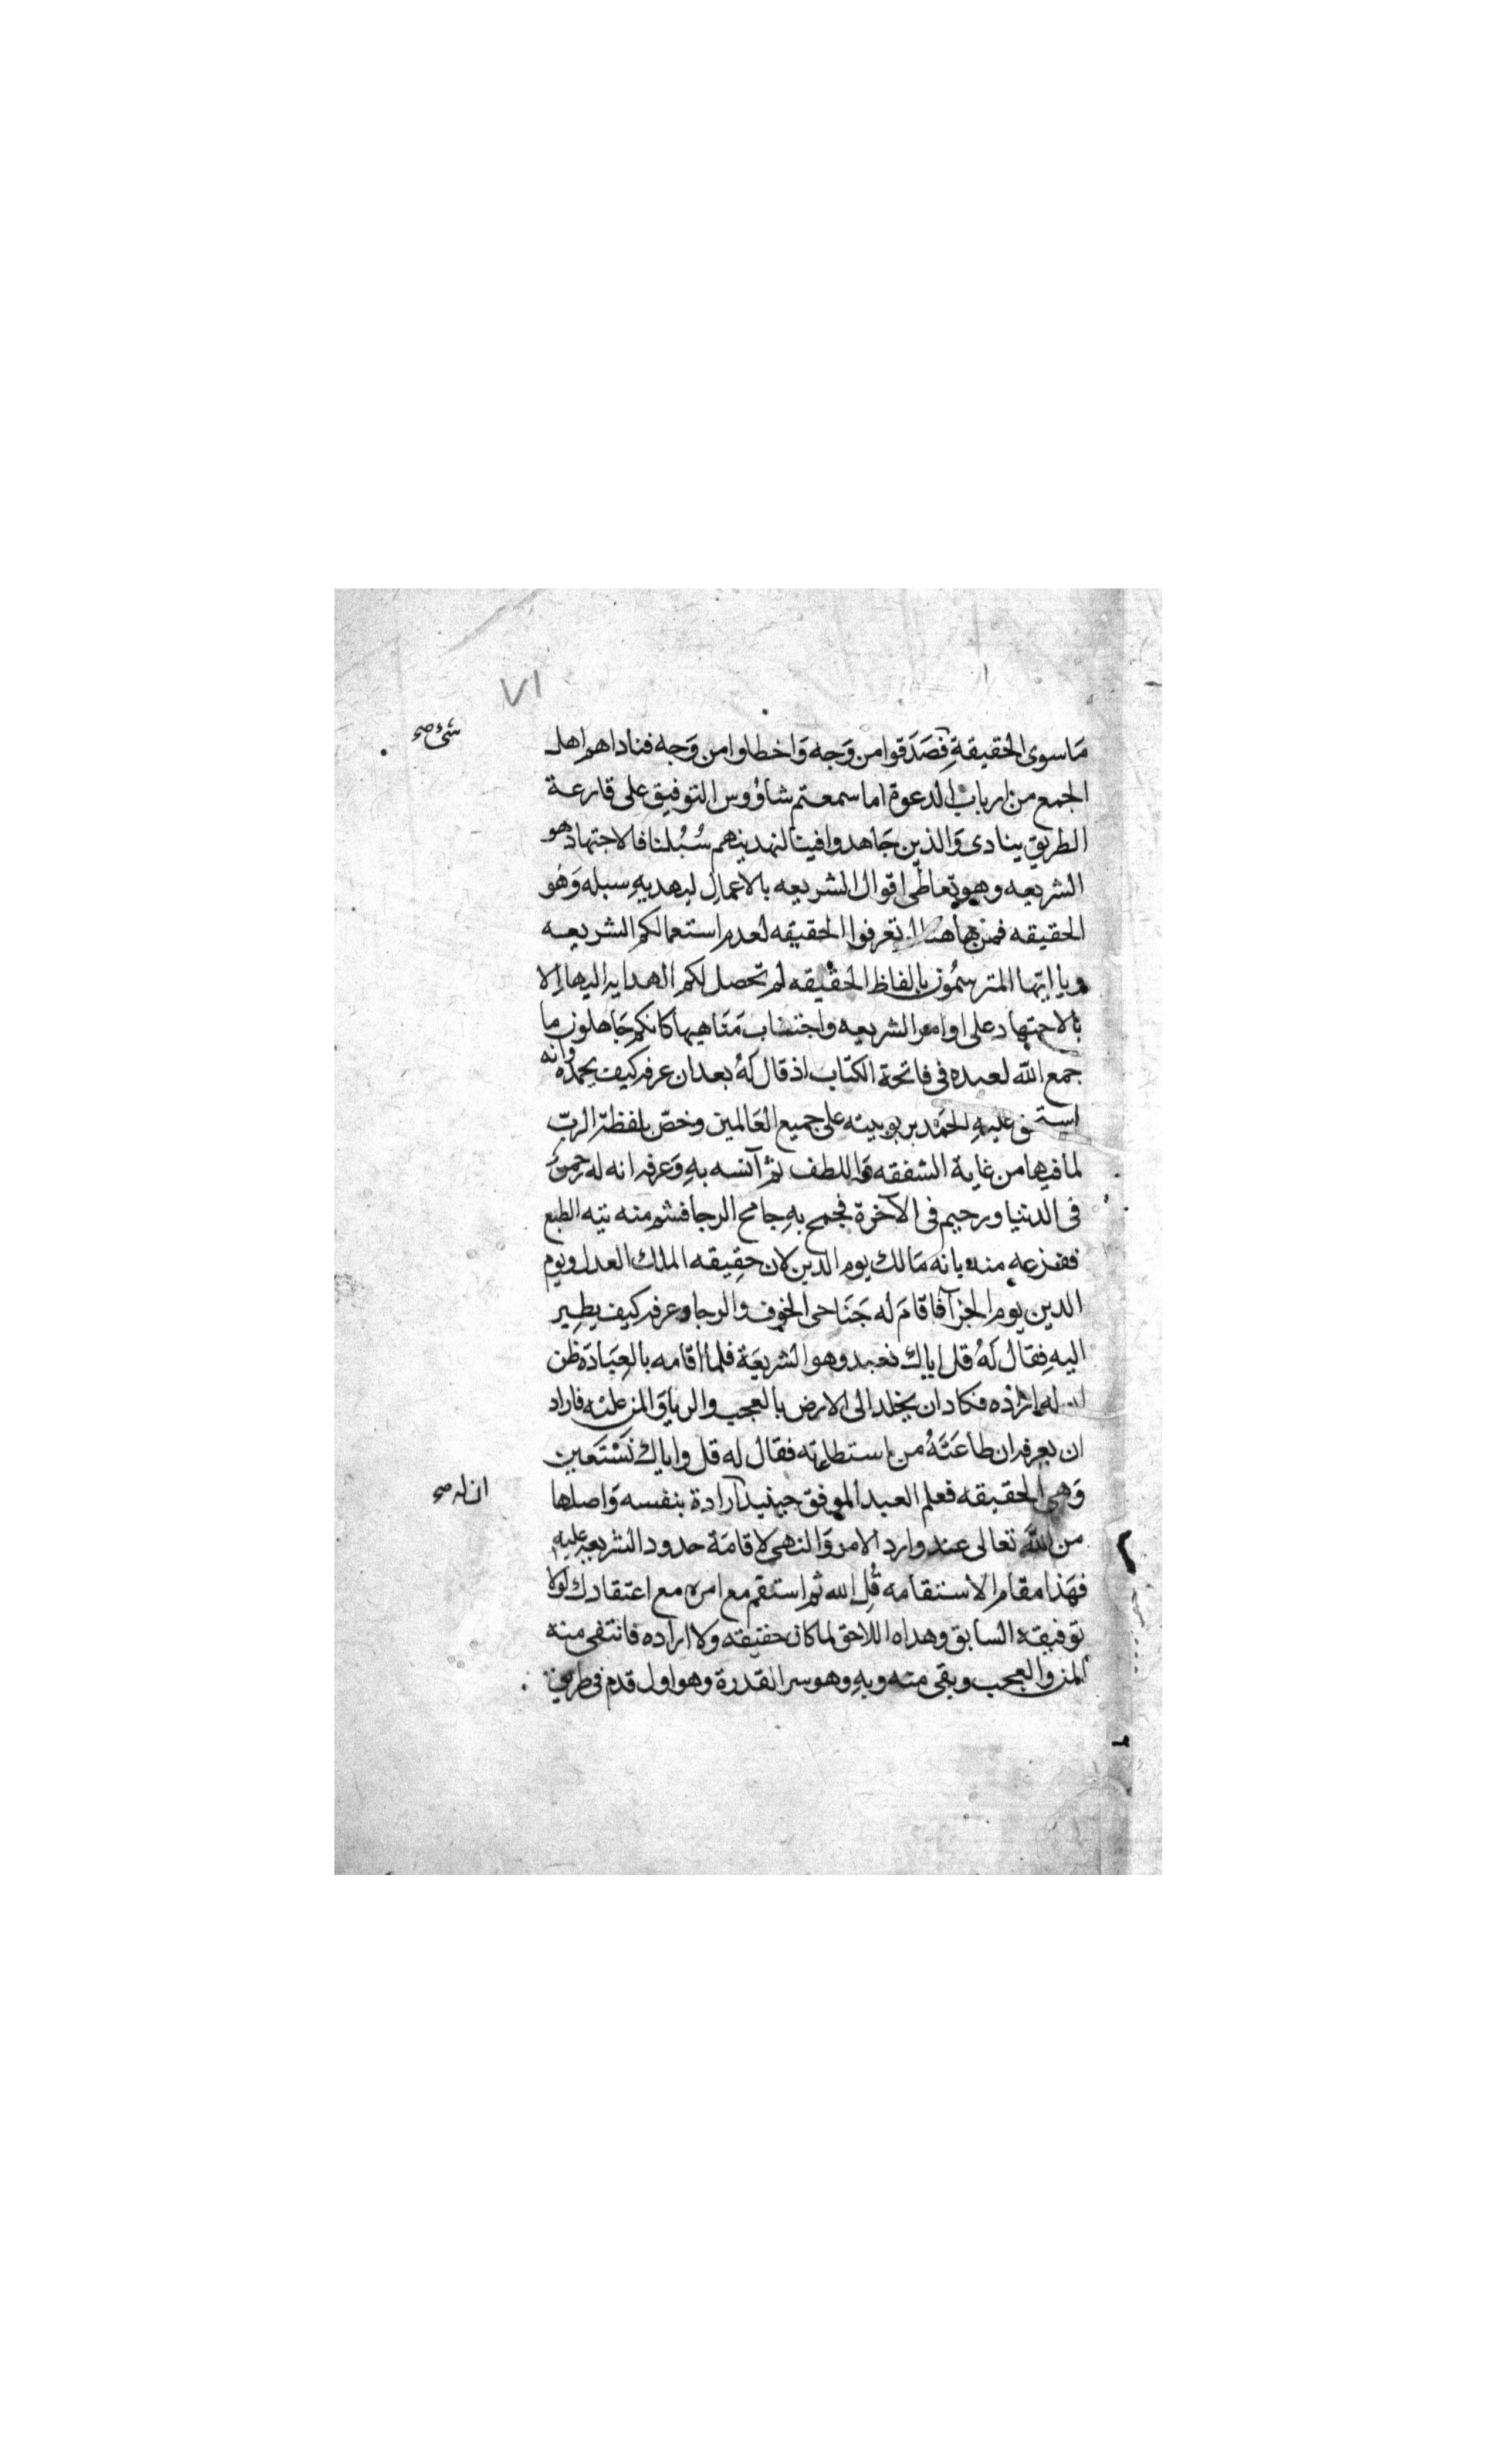 ٧١
مَا سوى الحقيقةِ فصَدَقوا من وَجه وَاخطاوا من وَجه فناداهم اهل
شئ صح
الجمع من ارباب الدعوة اما سمعتم شاؤوس التوفيق على قارعة
الطريق ينادى وَالذين جَاهدوا فينا لنهدينهم سُبُلنا فالاجتهاد هو
الشريعه وهو تعاطى اقوال الشريعه بالاعمالِ ليهديهِ سبله وَهُو
الحقيقه فمن هاهنا لم تعرفوا الحقيقه لعدم استعمالكم الشريعه
ويا ايّها المترسّمُون بالفاظ الحقيقه لم تحصل لكم الهدايه اليها الا
بالاجتهاد على اوامر الشريعه واجتناب مَنَاهيها كانكم جَاهلون ما
جمع الله لعبده فى فاتحة الكتاب اذ قال لهُ بعد ان عرفه كيف يحمده وانه
استحق عليهِ الحمد بربوبيته على جميع العَالمين وخصّ بلفظة الربّ
لما فيها من غاية الشفقه وَاللطف ثم آنسه بهِ وَعرفه انه له رحمنٌ
فى الدنيا ورحيم فى الآخرة فجمح بهِ جامح الرجا فشم منه تيه الطبع
ففزعه منه بانه مَالك يوم الدين لان حقِيقه الملك العدل ويوم
الدين يوم الجزآ فاقامَ له جَنَاحى الخوف والرجا وعرفه كيف يطير
اليهِ فقال لهُ قل اياك نعبد وهو الشريعَة فلما اقامه بالعِبَادَة ظن
ان له اراده فكاد ان يخلد الى الارض بالعجب والريا وَالمن عليه فاراد
ان يعرفه ان طاعَتَهُ من استطاعته فقال له قل واياك نَسْتَعين
وَهى الحقيقه فعلم العبد الموفق حينيذ آرادة بنفسه وَاصلها
ان له صح
من اللهَ تعالى عند وارد الامر وَالنهى لاقامَة حدود الشريعَة عليه
فهَذا مقام الاستقامه قُل الله ثم استقم مع امره مع اعتقادك لولا
توفيقه السابق وهداه اللاحق لما كان حقيقته ولا اراده فانتفى منه
المن والعجب وبقى منه وبهِ وهو سر القدرة وهو اول قدم فى طريق